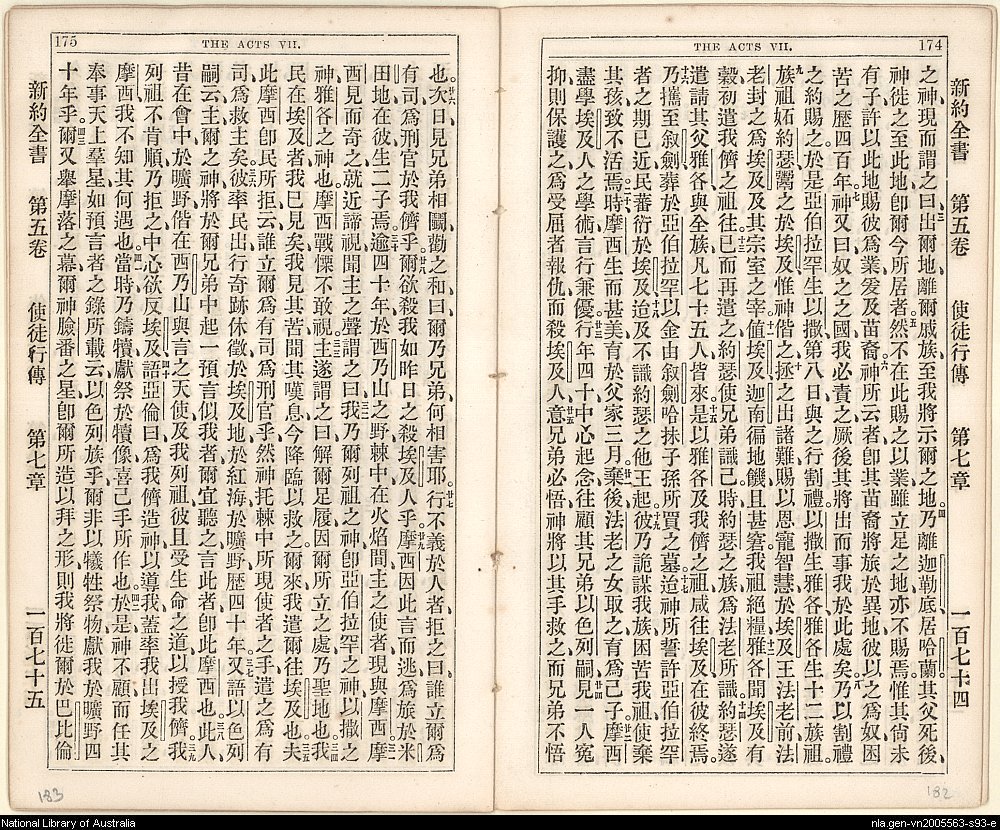 174
THE ACTS VII.
新約全書 第五卷 使徒行傳 第七章 一百七十四
之神現而謂之曰出爾地離爾戚族至我將示爾之地四乃離迦勒底居哈蘭其父死後
神徙之至此地卽爾今所居者五然不在此賜之以業雖立足之地亦不賜焉惟其尙未
有子許以此地賜彼爲業爰及苗裔六神所云者卽其苗裔將旅於異地彼以之爲奴困
苦之歷四百年七神又曰奴之之國我必責之厥後其將出而事我於此處矣八乃以割禮
之約賜之於是亞伯拉罕生以撒第八日與之行割禮以撒生雅各雅各生十二族祖
九族祖妬約瑟鬻之於埃及惟神偕之十拯之出諸難賜以恩寵智慧於埃及王法老前法
老封之爲埃及及其宗室之宰十一値埃及迦南徧地饑且甚窘我祖絕糧十二雅各聞埃及有
穀初遣我儕之祖往十三已而再遣之約瑟使兄弟識己時約瑟之族爲法老所識十四約瑟遂
遣請其父雅各與全族凡七十五人皆來十五是以雅各及我儕之祖咸往埃及在彼終焉
十六乃攜至叙劍葬於亞伯拉罕以金由叙劍哈抹子孫所買之墓十七迨神所誓許亞伯拉罕
者之期已近民蕃衍於埃及十八迨及不識約瑟之他王起十九彼乃詭謀我族困苦我祖使棄
其孩致不活焉二十時摩西生而甚美育於父家三月廿一棄後法老之女取之育爲己子廿二摩西
盡學埃及人之學術言行兼優廿三行年四十中心起念往顧其兄弟以色列嗣廿四見一人寃
抑則保護之爲受屈者報仇而殺埃及人廿五意兄弟必悟神將以其手救之而兄弟不悟
175
THE ACTS VII.
也廿六次日見兄弟相鬬勸之和曰爾乃兄弟何相害耶廿七行不義於人者拒之曰誰立爾爲
有司爲刑官於我儕乎廿八爾欲殺我如昨日之殺埃及人乎廿九摩西因此言而逃爲旅於米
田地在彼生二子焉三十逾四十年於西乃山之野棘中在火焰間主之使者現與摩西三一摩
西見而奇之就近諦視聞主之聲謂之曰三二我乃爾列祖之神卽亞伯拉罕之神以撒之
神雅各之神也摩西戰慄不敢視三三主遂謂之曰解爾足履因爾所立之處乃聖地也三四我
民在埃及者我已見矣我見其苦聞其嘆息今降臨以救之爾來我遣爾往埃及也三五夫
此摩西卽民所拒云誰立爾爲有司爲刑官乎然神托棘中所現使者之手遣之爲有
司爲救主矣三六彼率民出行奇跡休徵於埃及地於紅海於曠野歷四十年三七又語以色列
嗣云主爾之神將於爾兄弟中起一預言似我者爾宜聽之言此者卽此摩西也三八此人
昔在會中於曠野偕在西乃山與言之天使及我列祖彼且受生命之道以授我儕三九我
列祖不肯順乃拒之中心欲反埃及四十語亞倫曰爲我儕造神以導我蓋率我出埃及之
摩西我不知其何遇也四一當時乃鑄犢獻祭於犢像喜己手所作也四二於是神不顧而任其
奉事天上羣星如預言者之錄所載云以色列族乎爾非以犧牲祭物獻我於曠野四
十年乎四三爾又舉摩落之幕爾神臉番之星卽爾所造以拜之形則我將徙爾於巴比倫
新約全書 第五卷 使徒行傳 第七章 一百七十五
183
182
National Library of Australia
nla.gen-vn2005563-s93-e